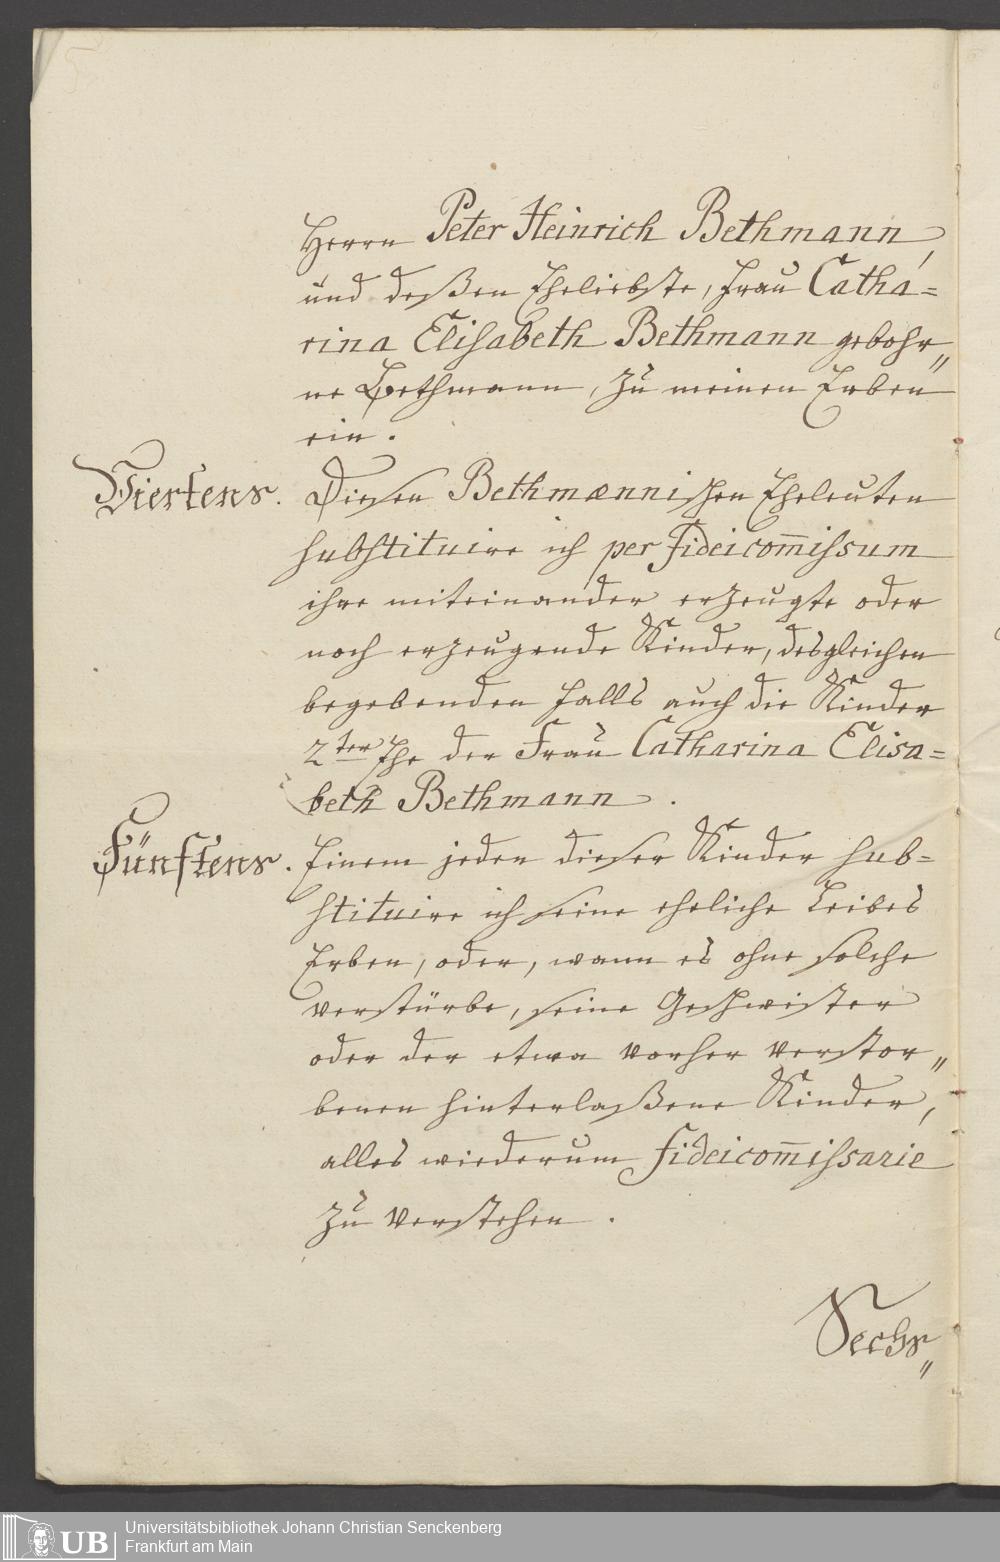 Herrn Peter Heinrich Bethmann,
und deßen Eheliebste, Frau Catha=
rina Elisabeth Bethmann gebohr„
ne Bethmann, zu meinen Erben
ein.
Viertens. Diesen Bethmænnischen Eheleuten
substituire ich per fideicom̅issum
ihre miteinander erzeugte oder
noch erzeugende Kinder, desgleichen
begebenden falls auch die Kinder
2ter Ehe der Frau Catharina Elisa=
beth Bethmann.
Fünftens. Einem jeden dieser Kinder sub=
stituire ich seine eheliche Leibes
Erben, oder, wann es ohne solche
verstürbe, seine Geschwister
oder der etwa vorher verstor„
benen hinterlaßene Kinder,
alles wiederum fideicom̅issarie
zu verstehen.
Sechs„
UB
Universitätsbibliothek Johann Christian Senckenberg
Frankfurt am Main